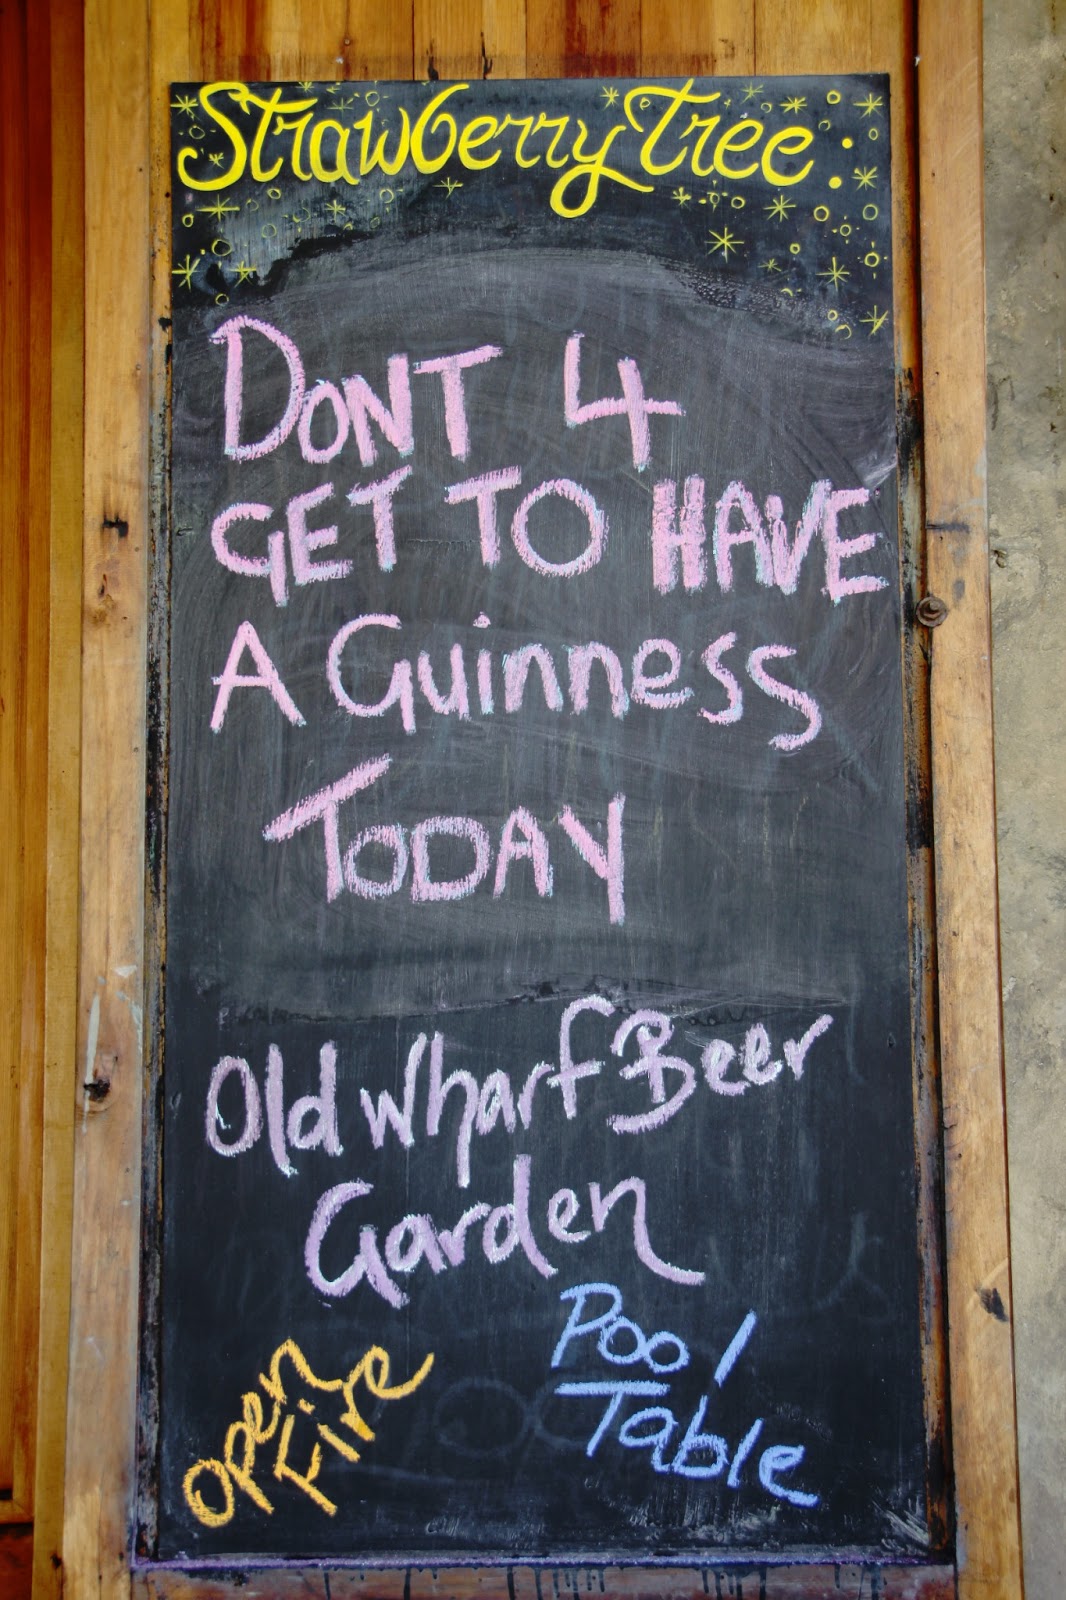 Strawberry Tree
DONT 4
GET TO HAVE
A Guinness
TODAY
Old wharf Beer
Garden
Open
Fire
Pool
Table